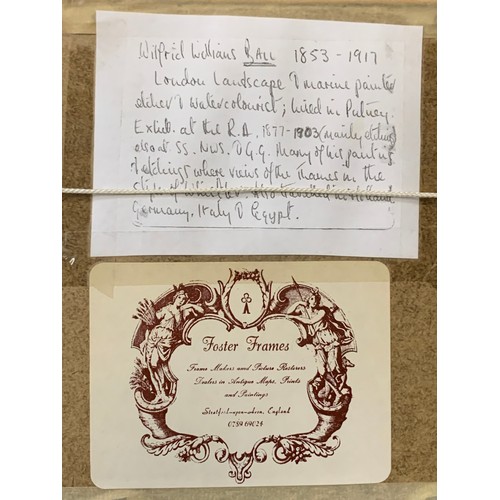 Wilfrid Williams BALL 1853 - 1917
London Landscape & marine painter
etcher & watercolourist; lived in Putney.
Exhib. at the R.A. 1877-1903 (mainly etchings)
also at SS. NWS. & G.G. Many of his paintings
& etchings where views of the Thames in the
style of Whistler. Also travelled in Holland
Germany, Italy & Egypt.
Foster Frames
Frame Makers and Picture Restorers
Dealers in Antique Maps, Prints
and Paintings
Stratford-upon-Avon, England
0789 69024